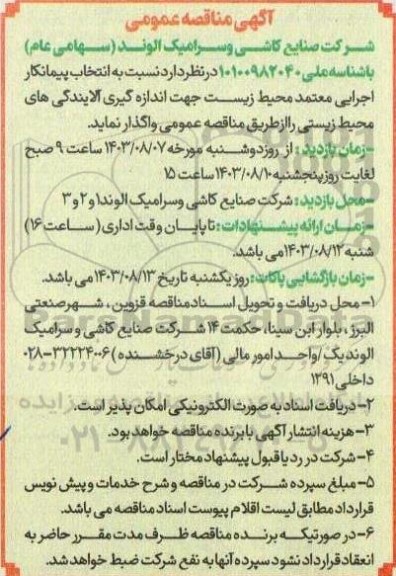 آگهی مناقصه عمومی
شرکت صنایع کاشی وسرامیک الوند (سهامی عام)
باشناسه ملی ۱۰۱۰۰۹۸۲۰۴۰ درنظر دارد نسبت به انتخاب پیمانکار
اجرایی معتمد محیط زیست جهت اندازه گیری آلایندگی های
محیط زیستی را ازطریق مناقصه عمومی واگذار نماید.
-زمان بازدید : از روز دوشنبه مورخه ۱۴۰۳/۰۸/۰۷ ساعت ۹ صبح
لغایت روز پنجشنبه ۱۴۰۳/۰۸/۱۰ ساعت ۱۵
-محل بازدید : شرکت صنایع کاشی وسرامیک الوند۱ و ۲ و ۳
-زمان ارائه پیشنهادات : تا پایان وقت اداری (ساعت ۱۶)
شنبه ۱۴۰۳/۰۸/۱۲ می باشد.
-زمان بازگشایی پاکات : روز یکشنبه تاریخ ۱۴۰۳/۰۸/۱۳ می باشد.
۱- محل دریافت و تحویل اسناد مناقصه قزوین ، شهرصنعتی
البرز ، بلوار ابن سینا، حکمت ۱۴ شرکت صنایع کاشی و سرامیک
الوند یک /واحد امور مالی (آقای درخشنده) ۳۲۲۲۴۰۰۶-۰۲۸
داخلی ۱۲۹۱
۲-دریافت اسناد به صورت الکترونیکی امکان پذیر است.
۳-هزینه انتشار آگهی با برنده مناقصه خواهد بود.
۴-شرکت در رد یا قبول پیشنهاد مختار است.
۵-مبلغ سپرده شرکت در مناقصه و شرح خدمات و پیش نویس
قرارداد مطابق لیست اقلام پیوست اسناد مناقصه می باشد.
۶-در صورتیکه برنده مناقصه ظرف مدت مقرر حاضر به
انعقاد قرارداد نشود سپرده آنها به نفع شرکت ضبط خواهد شد.